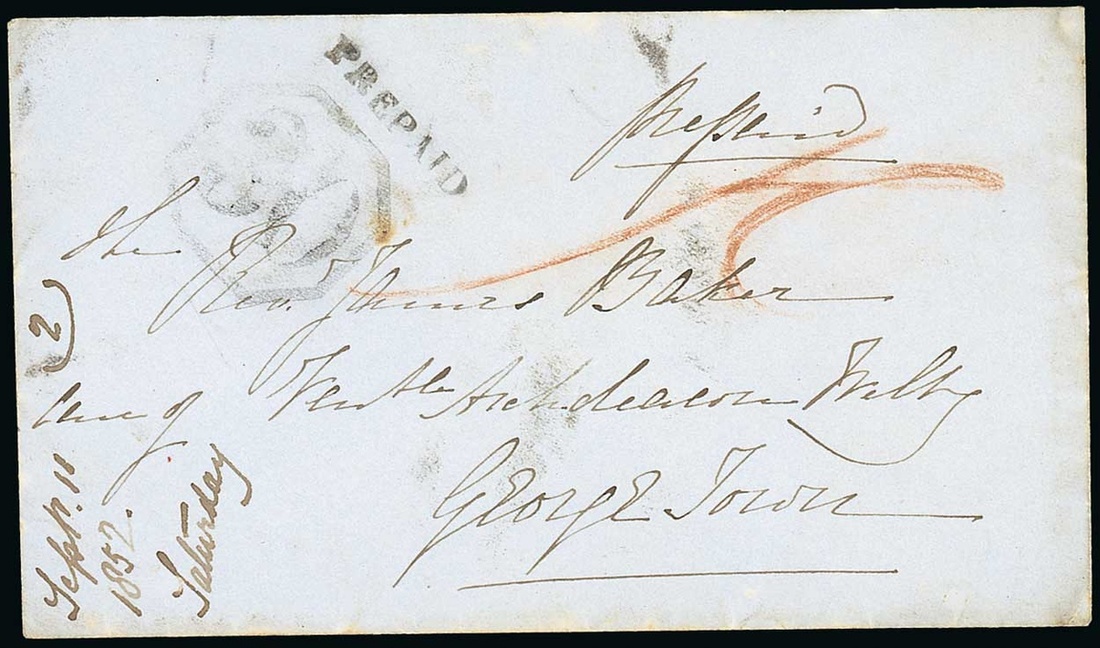 PREPAID
Prepaid
The
Revd. James Baker
Care of Venble Archdeacon Welby
George Town
2)
Sept. 11
1852.
Saturday